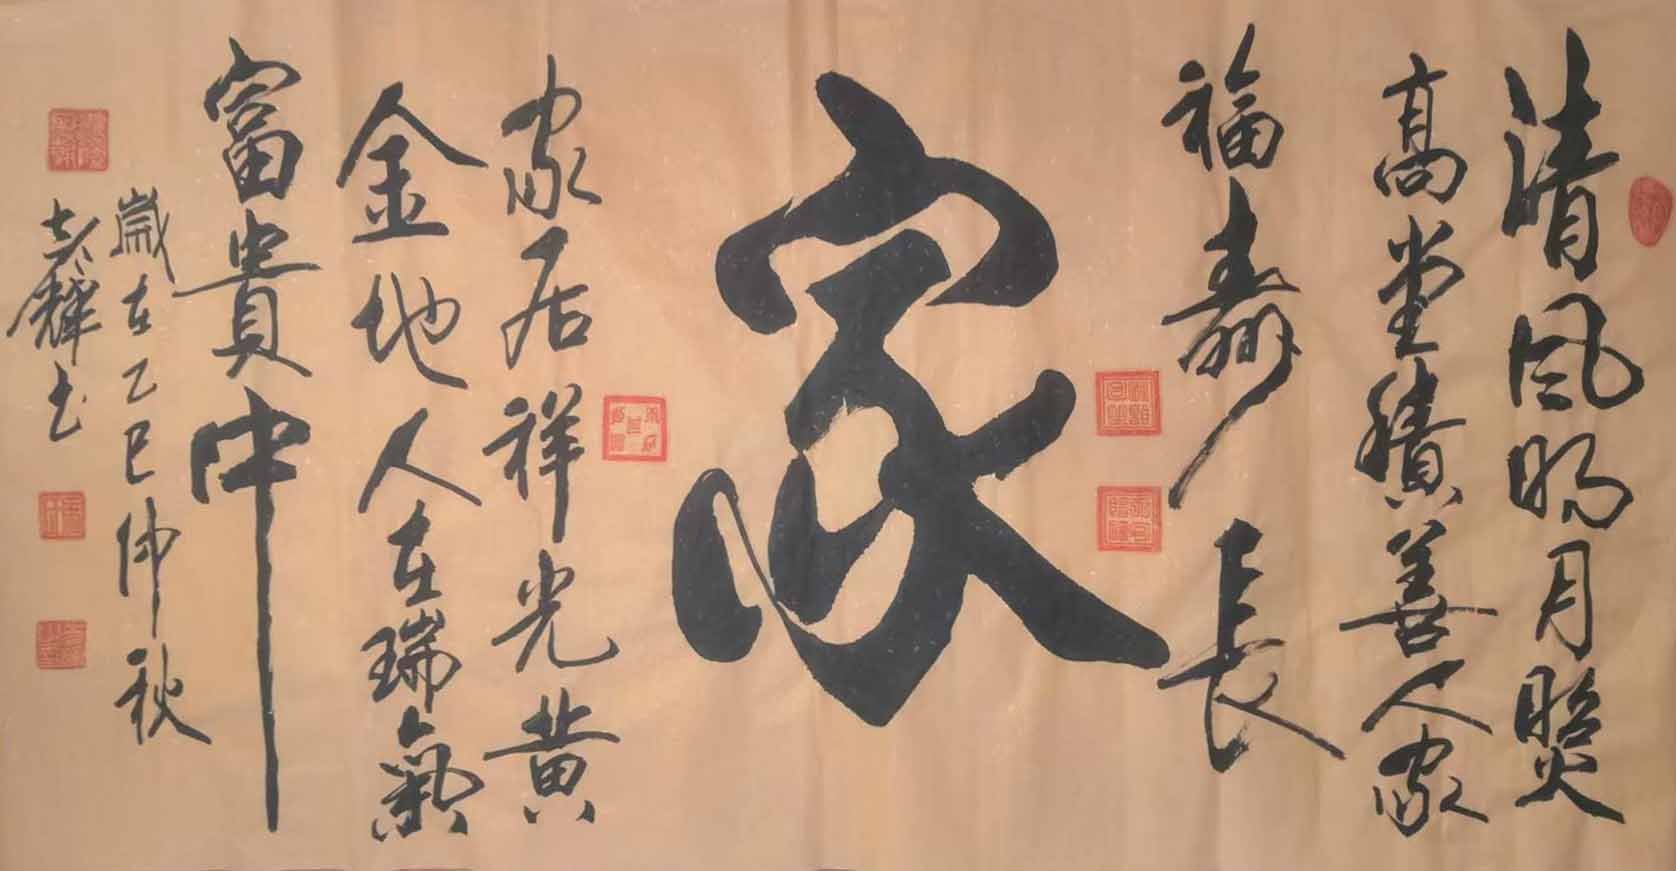 清風明月照
高堂積善人家
福壽長
家
家居祥光黄
金地人在瑞氣
富貴中
歲在乙巳仲秋
彭輝书